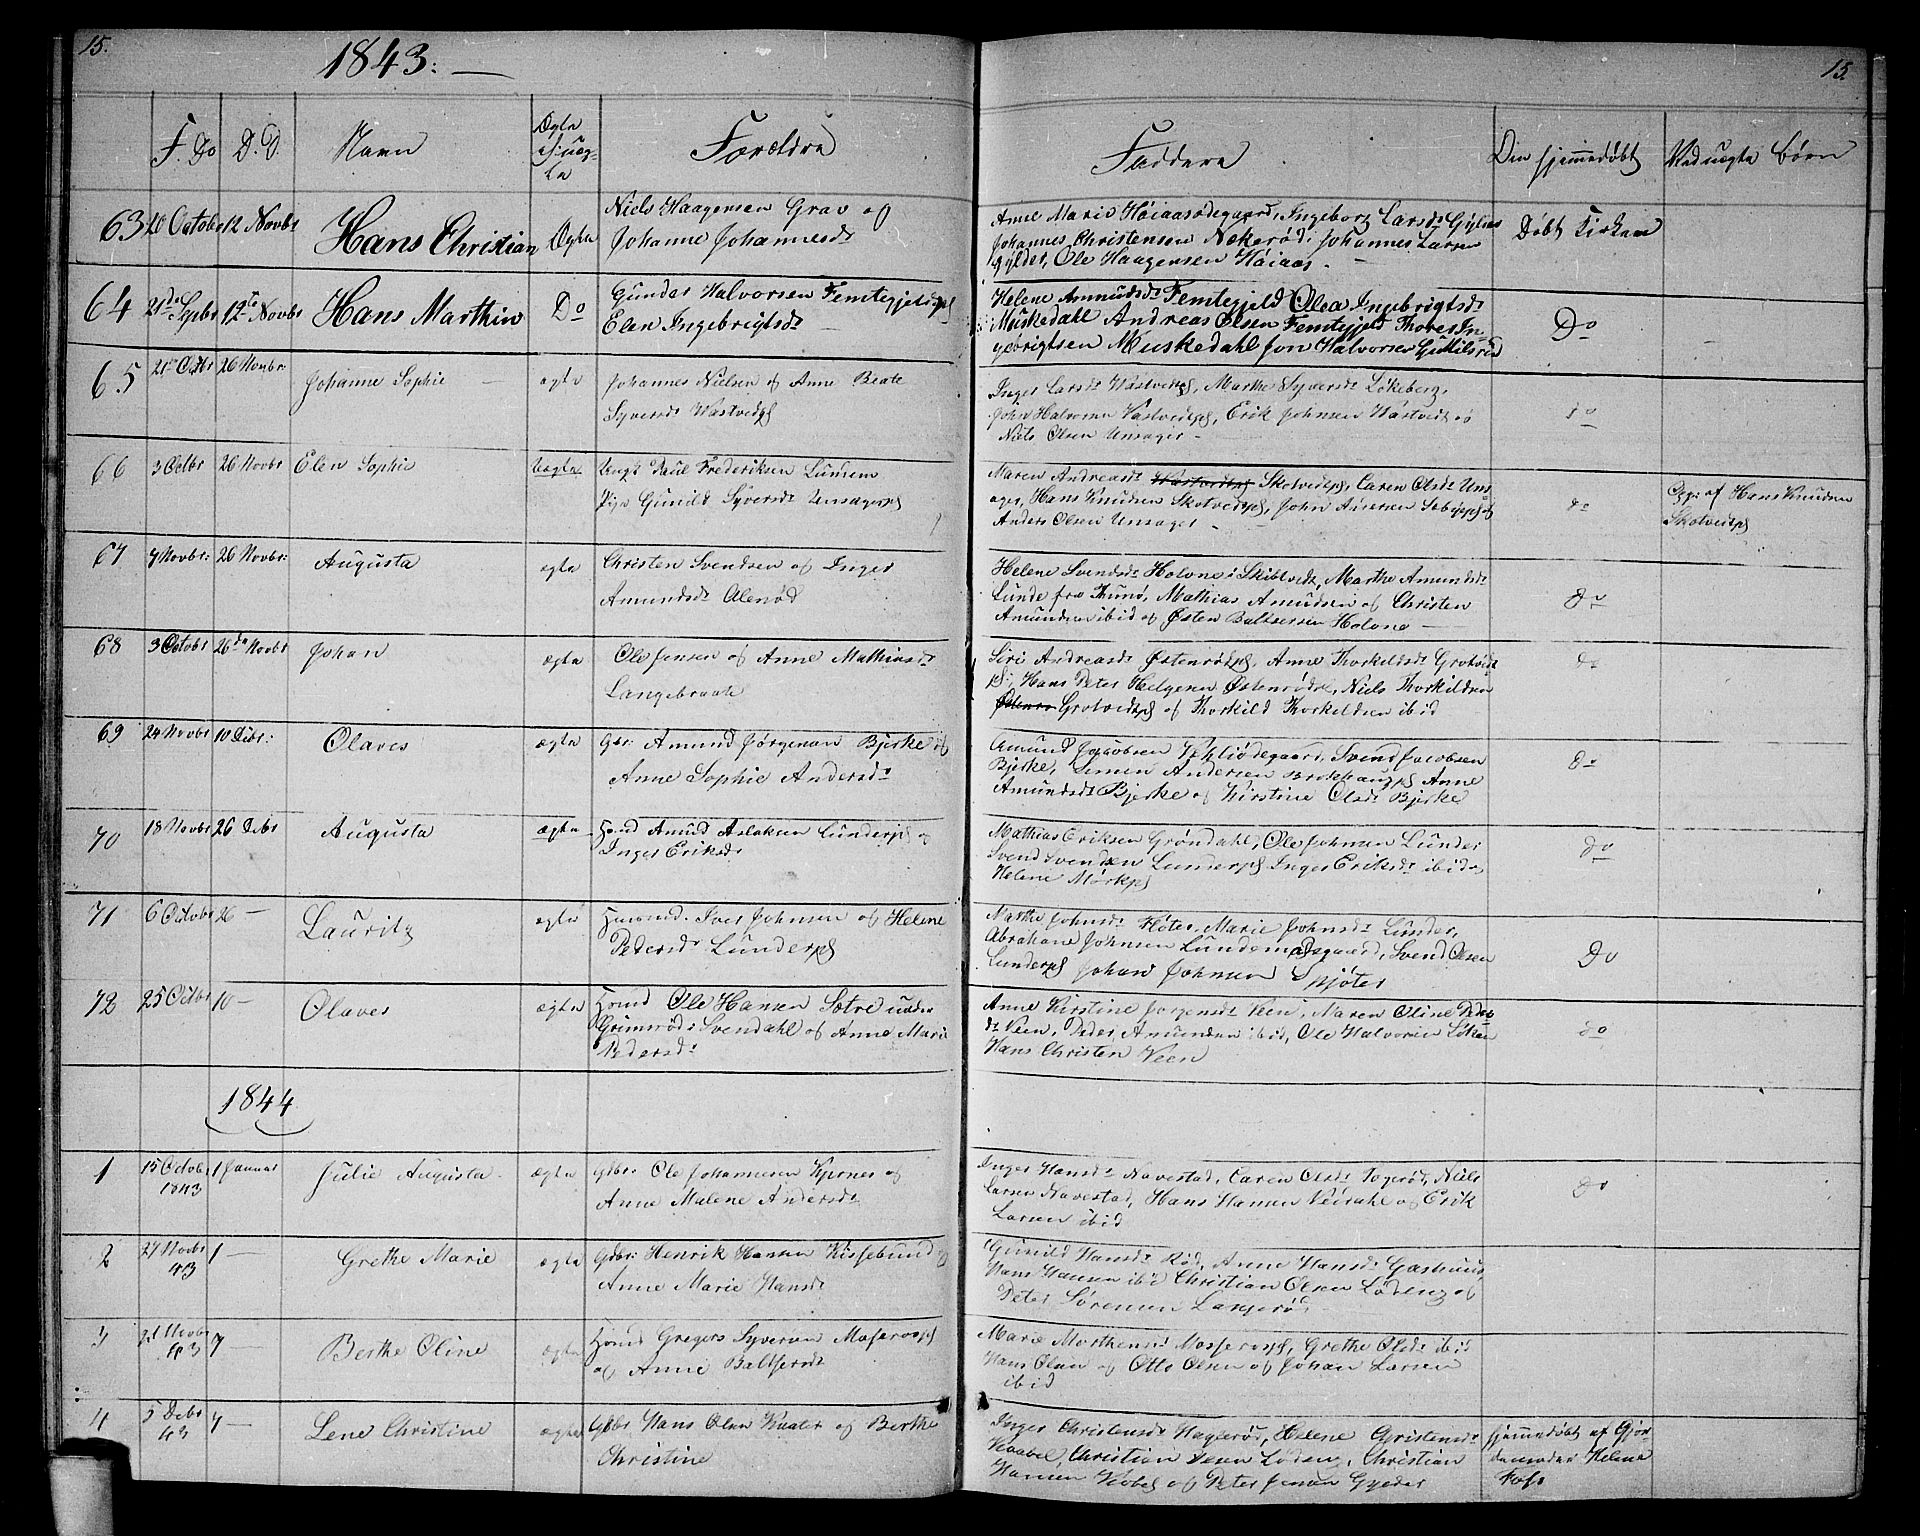 15.
1843.
15.
F. Do
D. D.
Navn
Ægte
el. uæg-
te
Forældre
Faddere
Om hjemmedøbt
Ved uægte børn
63
20 Octobr
12 Novbr
Hans Christian
Ægte
Niels Haagensen Grav og
Johanne Johannesdr
Anne Marie Høiaasødegaard, Ingeborg Larsdr Gylder
Johannes Christensen Nækerød, Johannes Larsen
Gylder, Ole Haagensen Høiaas
Døbt Kirken
64
21de Sepbr
12te Novbr
Hans Marthin
Do
Gunder Halvorsen Femtegjeld
Elen Ingebrigtsdr
Helene Ammudsdr Femtegjeld Olea Ingebrigtsdr
Muskedahl Andreas Olsen Femtegjeld Thores In-
gebrigtsen Muskedahl Jon Halvorsen
Do
65
26 Novbr
Johanne Sophie
ægte
Johannes Nielsen og Anne Beate
Syversdr Wastvedt
Inger Larsdr Wastvedt, Marthe Syversdr Løkeberg,
John Halvorsen Vastvedt, Erik Johnsen Wastvedt og
Niels Olsen Unsager
do
66
3 Octbr
26 Novbr
Elen Sophie
Uægte
Ungk Paul Frederiksen Lundem
Pige Gunild Syversdr Unsager
Maren Andreasdr Skotvedt, Caren Olsdr Uns-
ager, Hans Knudsen Skotvedt, John
Anders Olsen Unsager
do
Opg: af Hans Knudsen
Skotvedt
67
7 Novbr:
26 Novbr:
Augusta
ægte
Christen Svendsen og Inger
Amundsdr Alerød
Helene Svendsdr Holone i Skibtvedt, Marthe Amundsdr
Lunde fra Thunø, Mathias Amudsen og Christen
Amundsen ibid og Østen Baltsersen Holone
do
68
3 Octobr
26de Novbr
Johan
ægte
Ole Jensen og Anne Mathiasdr
Langebraate
Siri Andreasdr Østenrød, Anne Thorkildsdr Grotvedt
Hans Peter Helgesen Østenrød, Niels Thorkildsen
Grotvedt og Thorkild Thorkildsen ibid
do
69
24 Novbr
10 Debr:
Olaves
ægte
Gbr: Amund Jørgensen Bjerke og
Anne Sophie Andersdr
Amund Jacobsen, Svend Jacobsen
Bjerke, Simen Andersen Brekhaug Anne
Amundsdr Bjerke og Kirstine Olsdr Bjerke
do
70
18 Novbr
26 Debr
Augusta
ægte
Husmd Amund Aslaksen Lunder og
Inger Eriksdr
Mathias Eriksen Grøndahl, Ole Johnsen Lunder
Svend Svendsen Lunder Inger Eriksdr ibid og
Helene Mørk
do
71
6 Octobr
26 —
Lauritz
ægte
Husmd. Iver Johnsen og Helene
Pedersdr Lunder
Marthe Johnsdr Fløter, Marie Johnsdr Lunder,
Abrahan Johnsen Lundemødegaard, Svend Olsen
Lunder Johan Johnsen Spjøter
Do
72
25 Octbr
10 —
Olaves
ægte
Husmd Ole Hansen Sætre under
Grimsrød i Svendahl og Anne Marie
Pedersdr
Anne Kirstine Jørgensdr Veen, Maren Oline Peder-
dr Veen, Peder Amundsen ibid, Ole Halvorsen Løken
Hans Christen Veen
do
1844
1
15 Octobr
1843
1 Januar
Julie Augusta
ægte
Gdbr: Ole Johannesen Kjernes og
Anne Malene Andersdr
Inger Hansdr Navestad, Caren Olsdr, Niels
Larsen Navestad, Hans Hansen Veidahl og Erik
Larsen ibid
do
2
27 Novbr
43
1 —
Grethe Marie
ægte
Gdbr: Henrik Hansen Kissebund og
Anne Marie Hansdr
Gunild Hansdr Rød, Anne Hansdr Gashaug
Hans Hansen ibid Christian Olsen Lødeng og
Peter Sørensen Langerød
3
21 Novbr
43
7 —
Berthe Oline
ægte
Husmd Gregers Syversen Moserø
og Anne Baltsersdr
Marie Morthensdr, Grethe Olsdr ibid
Hans Olsen og Otto Olsen og Johan Larsen
ibid
4
5 Debr
43
7 —
Lene Christine
ægte
Gdbr Hans Olsen Knater og Berthe
Christine
Inger Christensdr Haglerød, Helene Christensdr
Knabel, Christian Løden, Christian
Hansen Knabel og Peter Jensen
hjemmedøbt af Gjor-
demoder Helene
Foss